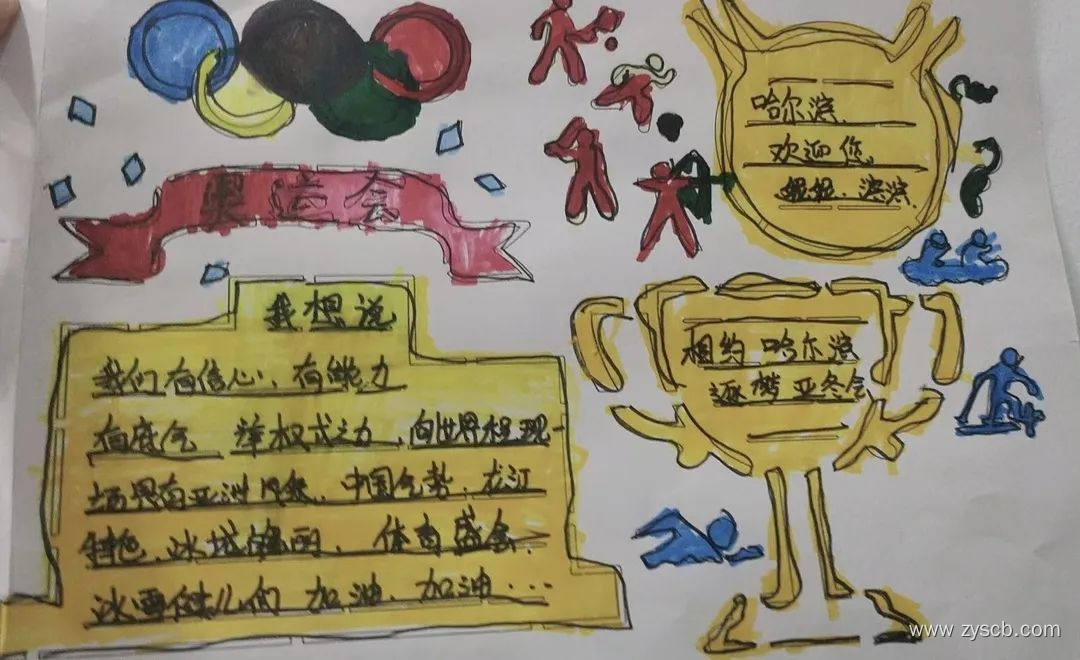 奥运会
我想说
我们有信心、有能力
有底气 举权式之力,向世界程现一
场界有亚洲风貌、中国气势、龙江
特色、冰城 体育盛会.
冰雪健儿们 加油、加油...
哈尔滨
欢迎您。
妮妮、滨滨
相约 哈尔滨
逐梦 亚冬会
www.zyscb.com